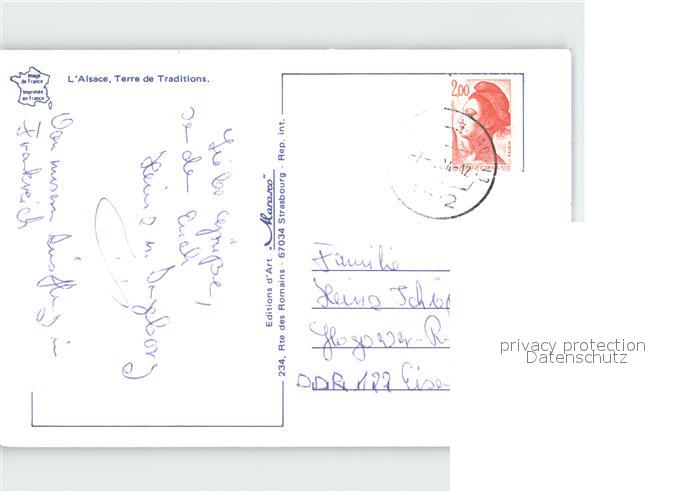 Image
de France
Imprimée
en France
L'Alsace, Terre de Traditions.
Von unserem Ausflug in
Frankreich
Liebe Grüße,
senden Euch
Heinz u. Ingeborg
Editions d'Art "Marasco"
234, Rte des Romains - 67034 Strasbourg - Rep. int.
2,00
Familie
Heinz
Glogower-
DDR 122 Eise
privacy protection
Datenschutz